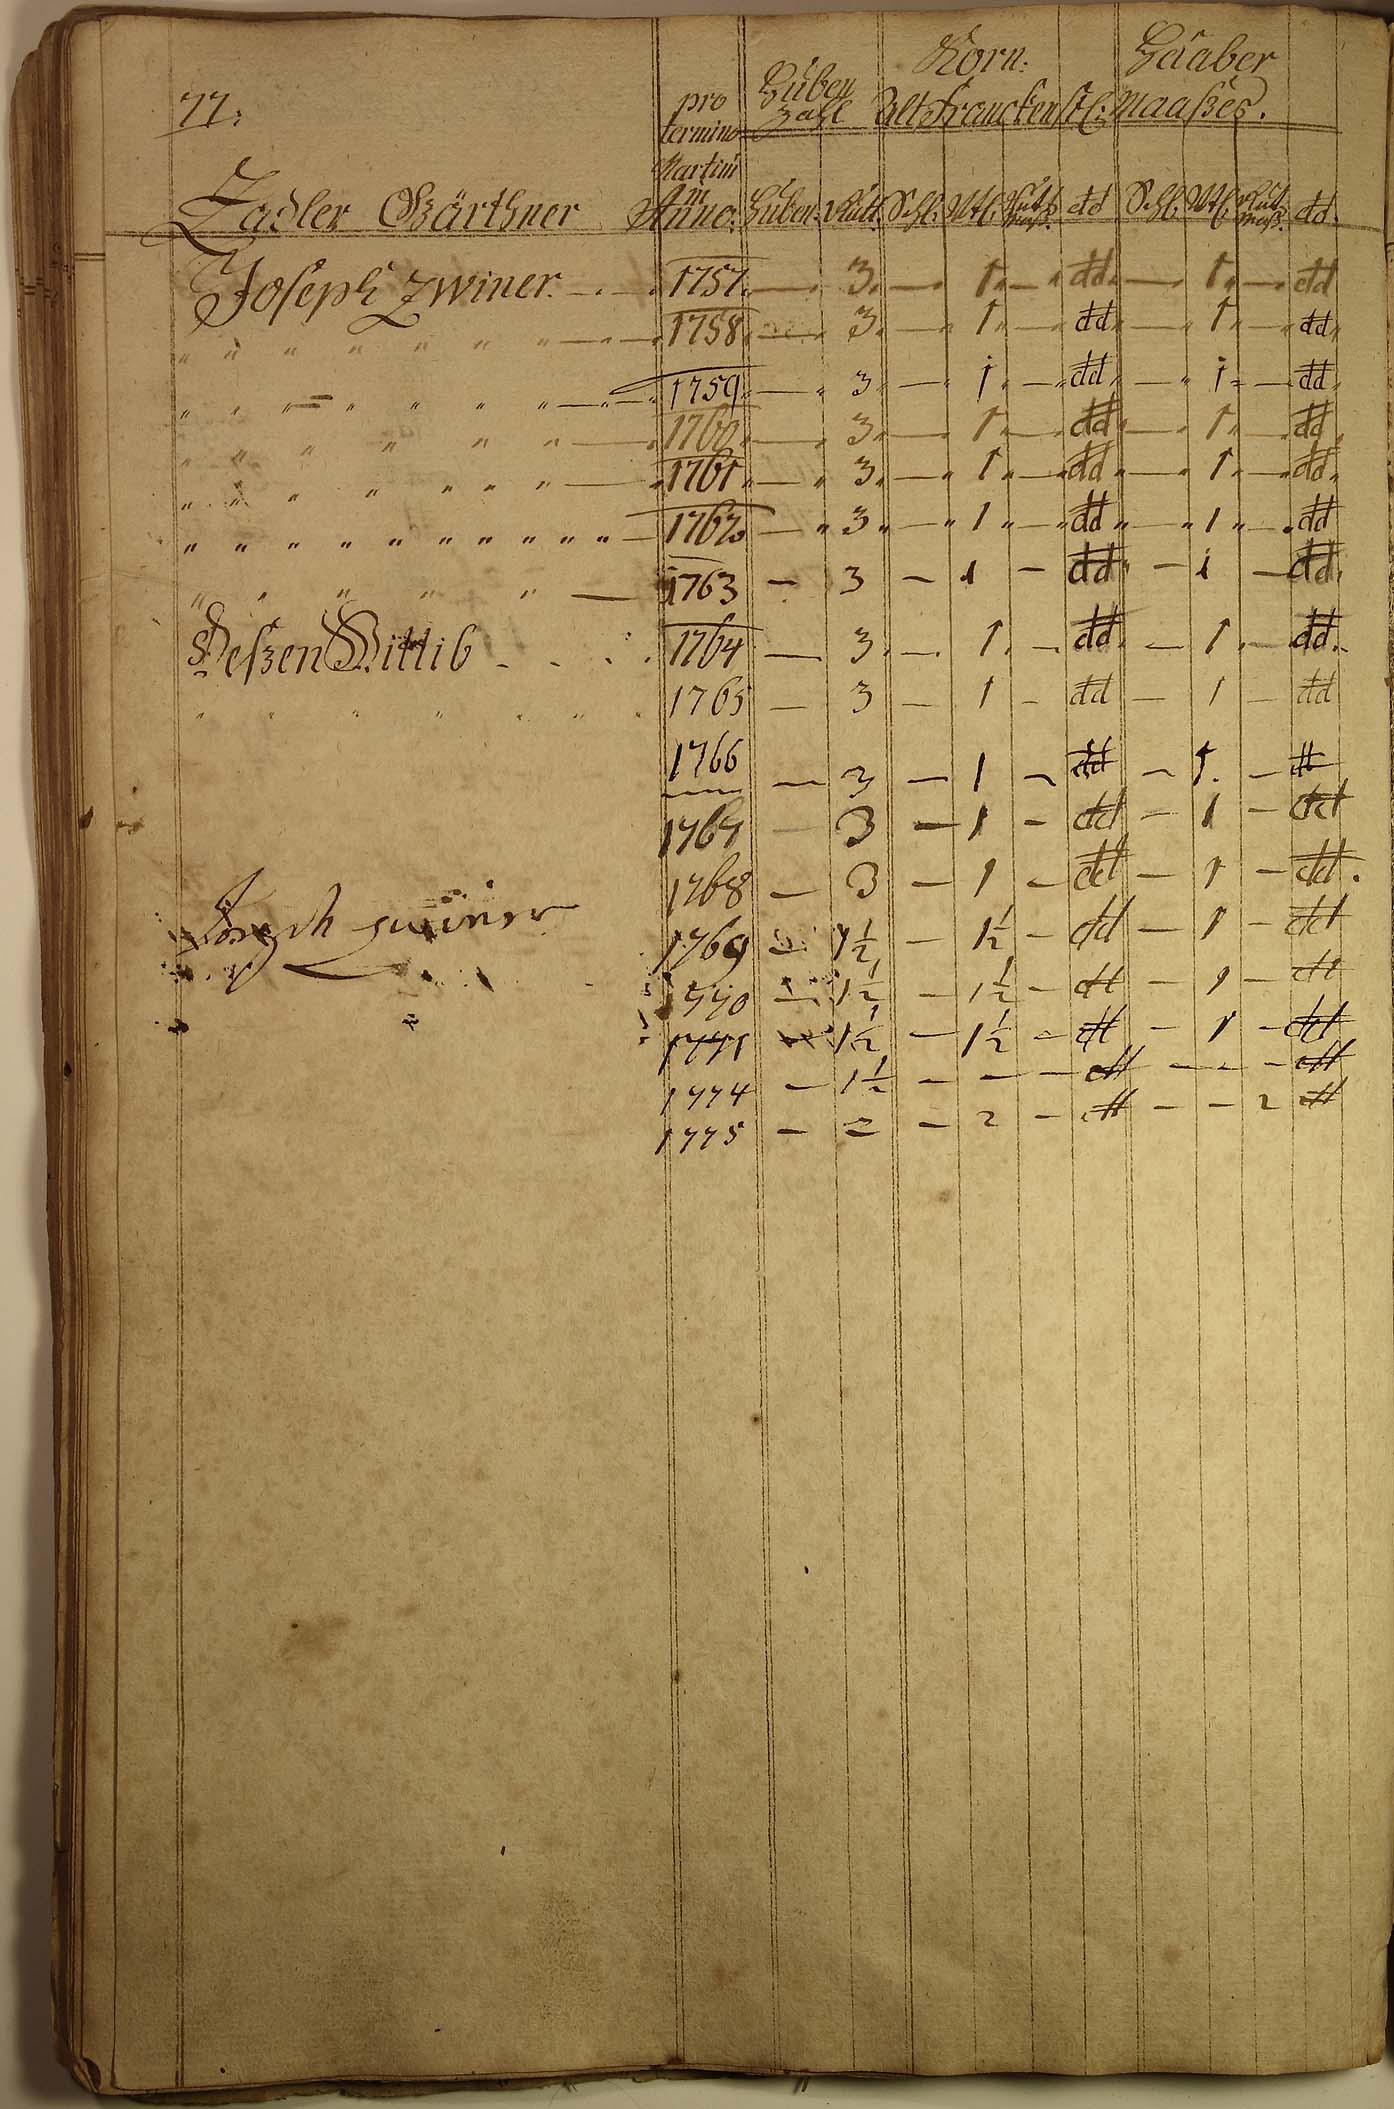 77:
pro termino Martini in Anno:
Huben Zahl
Korn:
Haaber
Alt Franckenst: Maaßes.
Zadler Gärthner Huben: Rutt: Schl: Mtl: dd Schl: Mtl: dd.
Joseph Zwiner. 1757. — 3. — 1. — dd. — 1. — dd
" " " " " " " — 1758. — 3. — 1. — dd. — 1. — dd.
" " " " " " — 1759 — 3. — 1. — dd. — 1 — dd.
" " " " " — 1760. — 3. — 1. — dd. — 1. — dd.
" " " " " " " — 1761. — 3. — 1. — dd. — 1. — dd.
" " " " " " " " " " — 1762. — 3. — 1. — dd. — 1. — dd
" " " " " — 1763 — 3 — 1 — dd. — 1 — dd.
Deßen Wittib 1764 — 3. — 1. — dd. — 1. — dd.
" " " " " " " 1765 — 3 — 1 — dd — 1 — dd
1766 — 3 — 1 — dd — 1. — dd
1767 — 3 — 1 — dd — 1 — dd
1768 — 3 — 1 — dd — 1 — dd.
Joseph Zwiner 1769 — 1½ — 1½ — dd — 1 — dd
1770 — 1½ — 1½ — dd — 1 — dd
1771 — 1½ — 1½ — dd — 1 — dd
1774 — 1½ — — — dd — — — dd
1775 — 2 — 2 — dd — — 2 dd